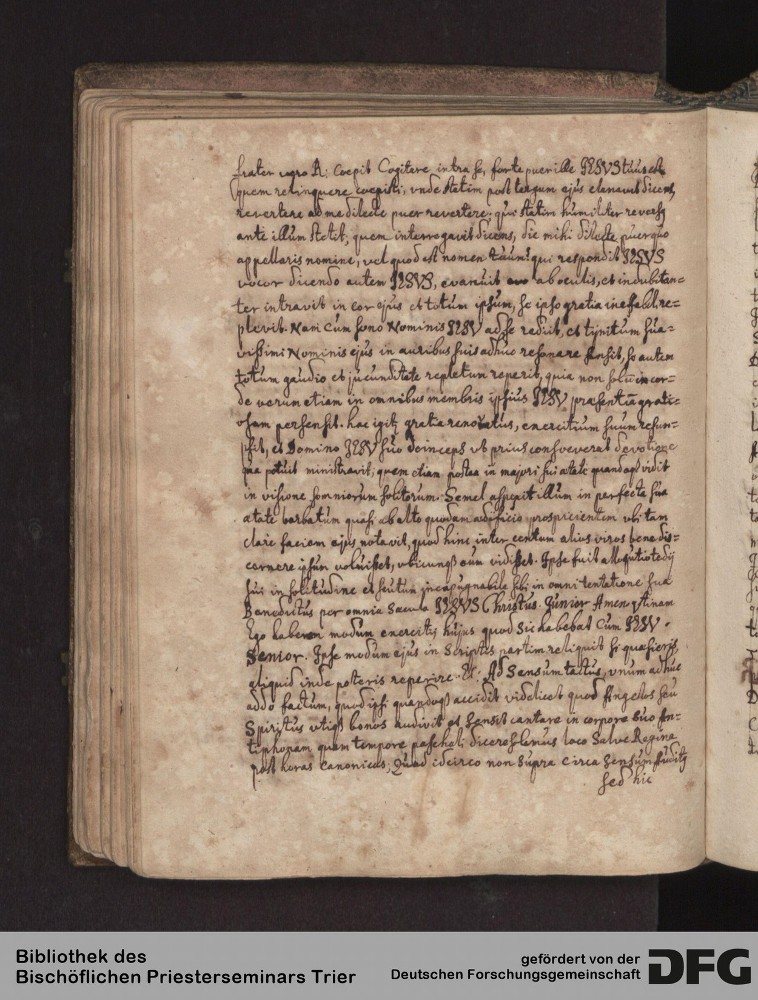 frater vero A: Coepit Cogitare intra se, forte puer ille JESVS tuus est
quem relinquere coepisti, vnde statim post tergum ejus clamavit dicens,
revertere ad me dilecte puer revertere; qui statim humiliter
ante illum stetit, quem interrogavit dicens, dic mihi dilecte puer quo
appellaris nomine, vel quod est nomen tuum? qui respondit JESVS
vocor dicendo autem JESVS, evanuit ab oculis, et indubitan=
ter intravit in cor ejus et totum ipsum, se ipso gratia ineffabil. re=
plevit. Nam Cum sono Nominis JESV ad se rediit, et tynitum sua=
vissimi Nominis ejus in auribus suis adhuc resonare sensit, se autem
totum gaudio et jucunditate repletum reperit, quia non solum in cor=
de verum etiam in omnibus membris ipsius JESV praesentiā grati=
osam persensit. hac igitꝫ gratia renovatus, exercitium suum resum=
psit, et Domino JESV suo deinceps vt prius consveverat devotione
qua potuit ministravit, quem etiam postea in majori sui aetate quandoqꝫ vidit
in visione somniorum solitorum. Semel aspexit illum in perfecta sua
aetate barbatum quasi ab alto quodam aedificio prospicientem vbi tam
clare faciem ejus notavit, quod hinc inter centum alios viros bene dis=
cernere ipsum voluisset, vbicunqꝫ eum vidisset. Ipse fuit allocutio tedij
sui in solitudine et scutum inexpugnabile sibi in omni tentatione sua
Benedictus per omnia Saecula JESVS Christus Junior Amen vtinam
Ego haberem modum exercitij hujus quod sic habebat Cum JESV.
Senior. Ipse modum ejus in Scriptis partim reliquit si quaesieris
aliquid inde poteris reperire. Et: Ad Sensum tactus, vnum adhuc
addo factum, quod ipsi quandoqꝫ accidit videlicet quod Angelos seu
Spiritus vtiqꝫ bonos audivit et sensit cantare in corpore suo An=
tiphonam quam tempore paschali dicere solemus loco Salve Regina
post horas Canonicas, Quod idcirco non Supra Circa Sensum Auditꝫ
sed hic
Bibliothek des
Bischöflichen Priesterseminars Trier
gefördert von der
Deutschen Forschungsgemeinschaft
DFG